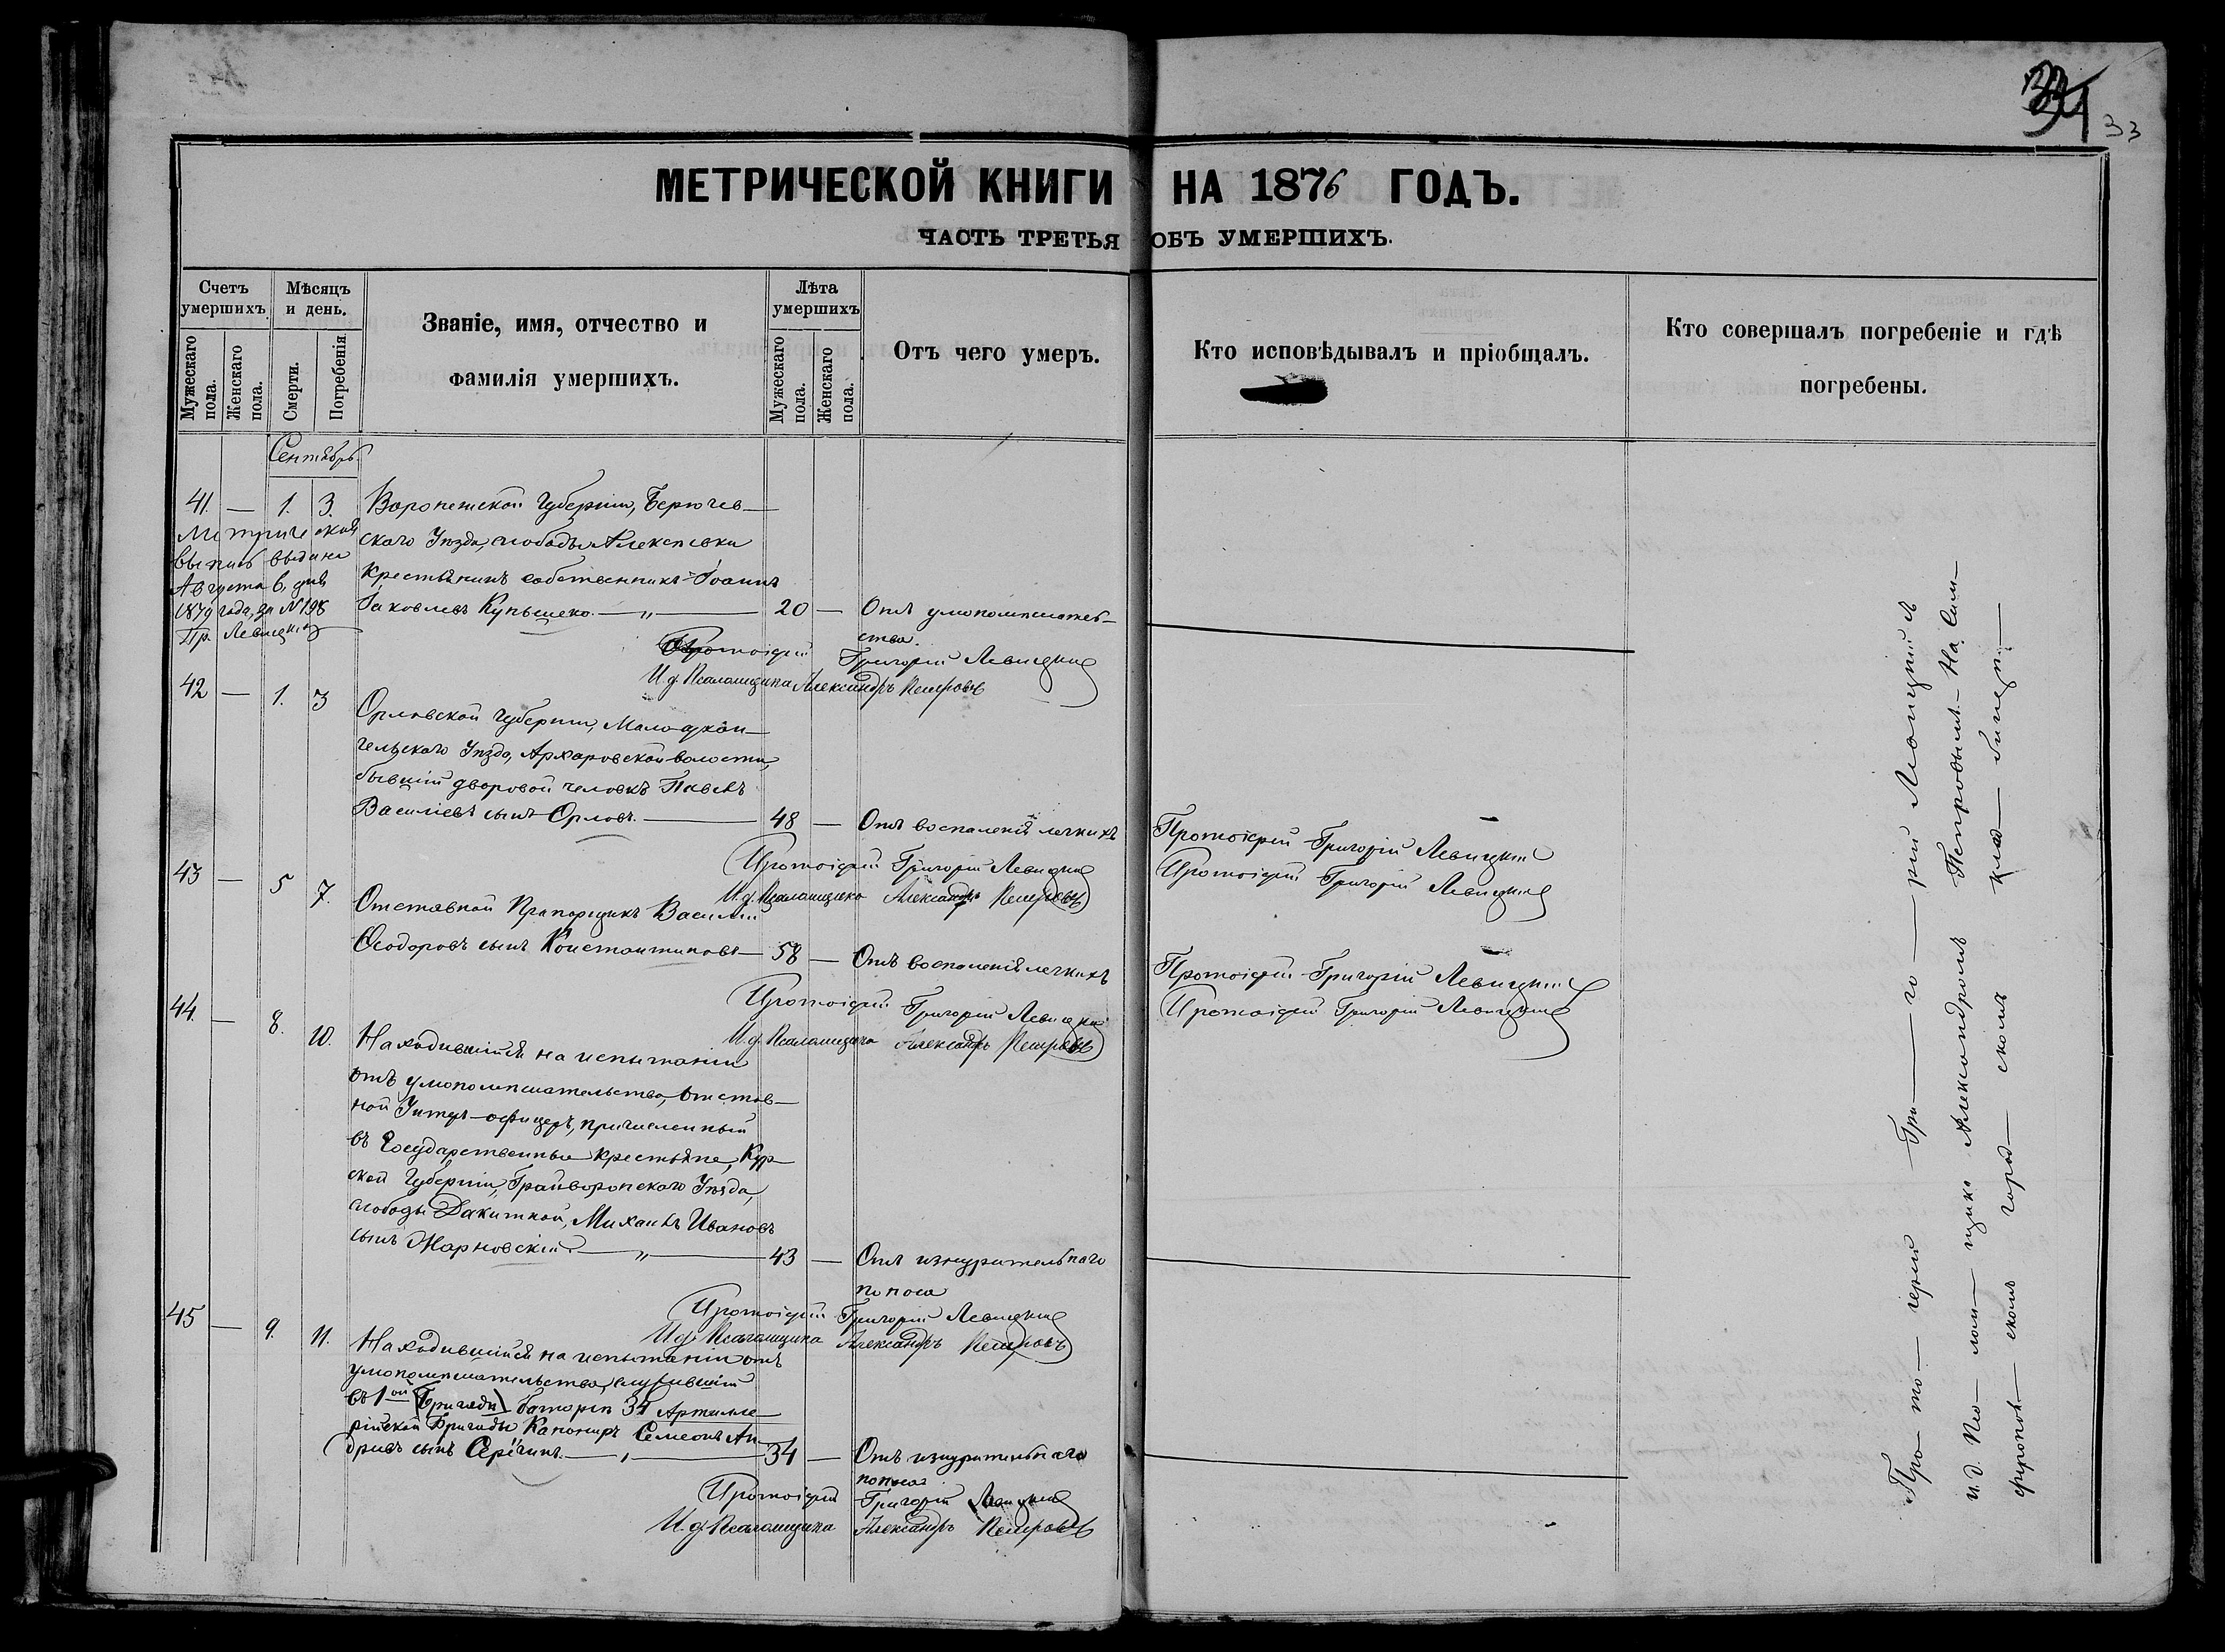 33
МЕТРИЧЕСКОЙ КНИГИ НА 1876 ГОДЪ.
ЧАСТЬ ТРЕТЬЯ ОБЪ УМЕРШИХЪ.
Счетъ умершихъ.
Мужескаго пола.
Женскаго пола.
Мѣсяцъ и день.
Смерти.
Погребенія.
Званіе, имя, отчество и
фамилія умершихъ.
Лѣта умершихъ
Мужескаго пола.
Женскаго пола.
Отъ чего умеръ.
Кто исповѣдывалъ и пріобщалъ.
Кто совершалъ погребеніе и гдѣ
погребены.
Сентябрь.
41. — 1. 3. Воронежской Губерніи, Бирючев—
скаго Уѣзда, слободы Алексѣевки
крестьянинъ собственникъ Іоаннъ
Яковлевъ — „ — 20 — Отъ умопомѣшатель—
ства.
Метрическая
выпись выдана
Августа 6, дня
1879 года, за № 198
Пр. Левицкій
Протоіерей Григорій Левицкій
И. д. Псаломщика Александръ Петровъ
42 — 1. 3 Орловской Губерніи, Малоархан—
гельскаго Уѣзда, Архаровской волости,
бывшій дворовой человѣкъ Павелъ
Васильевъ сынъ Орловъ. — 48 — Отъ воспаленія легкихъ
Протоіерей Григорій Левицкій
Протоіерей Григорій Левицкій
И. д. Псаломщика Александръ Петровъ
Протоіерей Григорій Левицкій
43 — 5 7. Отставной Прапорщикъ Василій
Ѳеодоровъ сынъ Константиновъ — 58 — Отъ воспаленія легкихъ
Протоіерей Григорій Левицкій
Протоіерей Григорій Левицкій
И. д. Псаломщика Александръ Петровъ
Протоіерей Григорій Левицкій
44. — 8. 10. Находившійся на испытаніи
отъ умопомѣшательства, отстав—
ной Унтеръ-офицеръ, причисленный
въ Государственные крестьяне, Кур—
ской Губерніи, Грайворонскаго Уѣзда,
слободы Ракитной, Михаилъ Ивановъ
сынъ Жарновскій — „ — 43 — Отъ изнурительнаго
поноса
Протоіерей Григорій Левицкій
И. д. Псаломщика Александръ Петровъ
45 — 9. 11. Находившійся на испытаніи отъ
умопомѣшательства, служившій
въ 1ой (Бригады) батареѣ 34 Артилле—
рійской Бригады Канониръ Семеонъ Ан—
дреевъ сынъ — 34 — Отъ изнурительнаго
поноса
Протоіерей Григорій Левицкій
И. д. Псаломщика Александръ Петровъ
Про — то — іерей Гри — го — рій Левицкій съ
и. д. Пса — лом — щика Александромъ Петровымъ. — На Сим—
феропол — скомъ город — скомъ клад — бищѣ. —